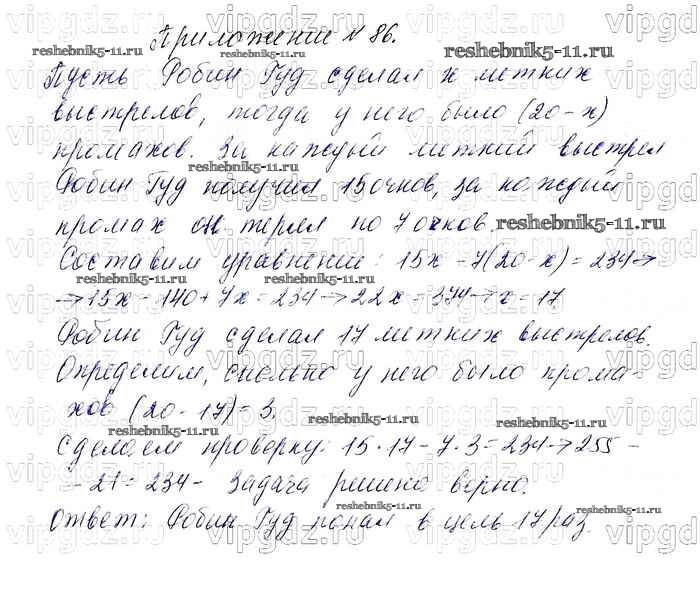 Приложение № 86.
Пусть Робин Гуд сделал x метких
выстрелов, тогда у него было (20-x)
промахов. За каждый меткий выстрел
Робин Гуд получил 15 очков, за каждый
промах он терял по 7 очков.
Составим уравнение: 15x - 7(20-x) = 234 →
→ 15x - 140 + 7x = 234 → 22x = 374 → x = 17
Робин Гуд сделал 17 метких выстрелов.
Определим, сколько у него было прома-
хов (20 - 17) = 3.
Сделаем проверку: 15 · 17 - 7 · 3 = 234 → 255 -
- 21 = 234 - Задача решена верно.
Ответ: Робин Гуд попал в цель 17 раз.
reshebnik5-11.ru
vipgdz.ru